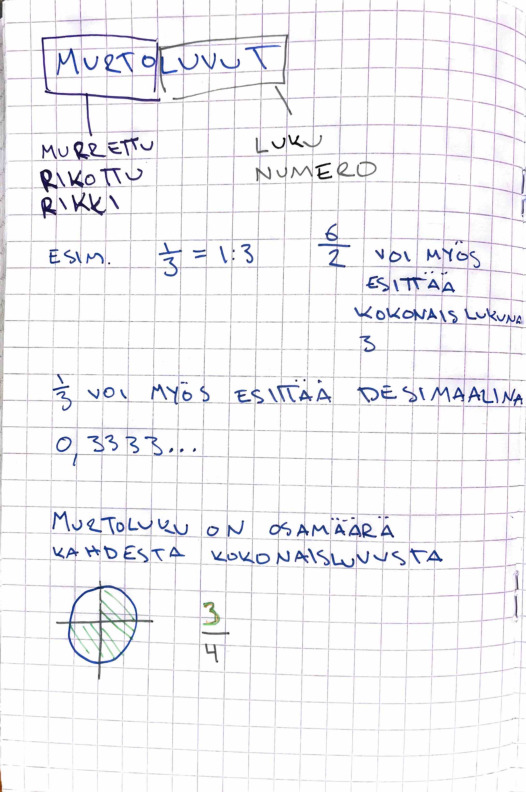 MURTOLUVUT
MURRETTU
RIKOTTU
RIKKI
LUKU
NUMERO
ESIM. 1/3 = 1:3
6/2 VOI MYÖS
ESITTÄÄ
KOKONAISLUKUNA
3
1/3 VOI MYÖS ESITTÄÄ DESIMAALINA
0,3333...
MURTOLUKU ON OSAMÄÄRÄ
KAHDESTA KOKONAISLUVUSTA
3/4